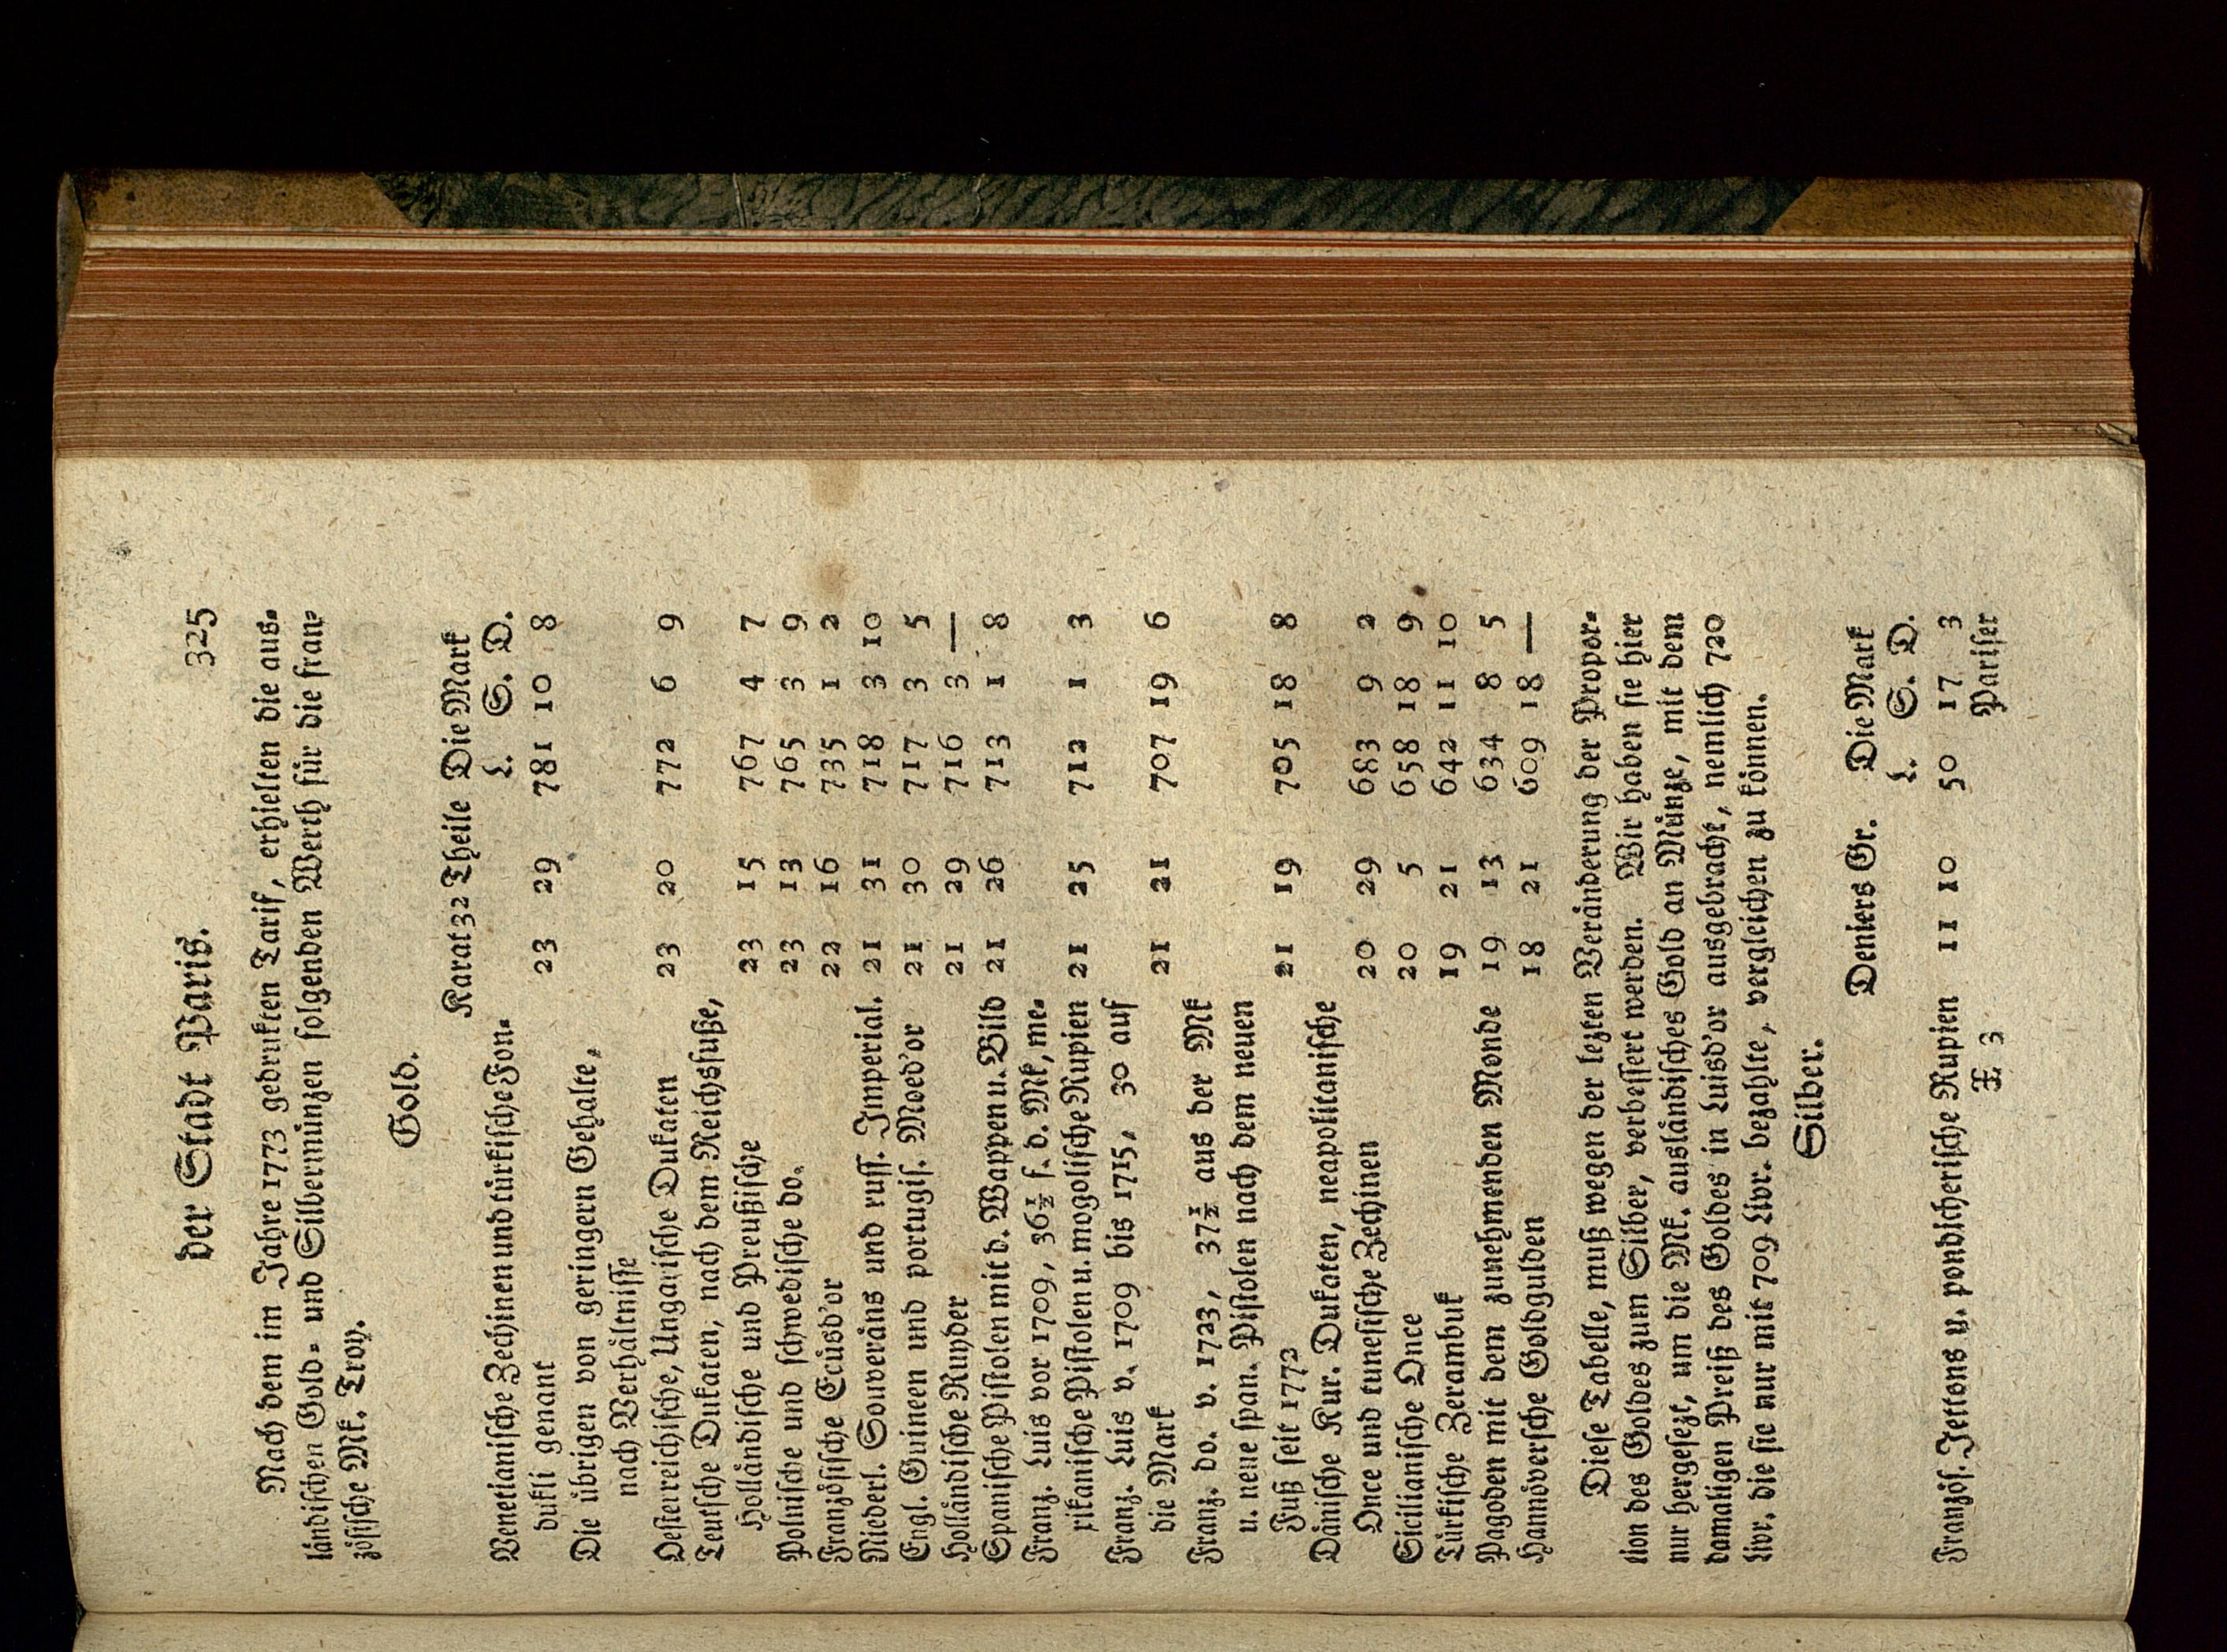 der Stadt Paris. 325
Nach dem im Jahre 1773 gedrukten Tarif, erhielten die aus-
ländischen Gold- und Silbermünzen folgenden Werth für die fran-
zösische Mk. Troy.
Gold.
Karat 32 Theile Die Mark
L. S. D.
Venetianische Zechinen und türkische Fon-
dukli genant 23 29 781 10 8
Die übrigen von geringern Gehalte,
nach Verhältnisse
Oesterreichische, Ungarische Dukaten 23 20 772 6 9
Teutsche Dukaten, nach dem Reichsfuße,
Holländische und Preußische 23 15 767 4 7
Polnische und schwedische do. 23 13 765 3 9
Französische Ecüsd'or 22 16 735 1 2
Niederl. Souveräns und russ. Imperial. 21 31 718 3 10
Engl. Guineen und portugis. Moed'or 21 30 717 3 5
Holländische Ruyder 21 29 716 3 —
Spanische Pistolen mit d. Wappen u. Bild 21 26 713 1 8
Franz. Luis vor 1709, 36½ s. d. Mk, me-
rikanische Pistolen u. mogolische Rupien 21 25 712 1 3
Franz. Luis v. 1709 bis 1715, 30 auf
die Mark 21 21 707 19 6
Franz. do. v. 1723, 37½ aus der Mk
u. neue span. Pistolen nach dem neuen
Fuß seit 1772 21 19 705 18 8
Dänische Kur. Dukaten, neapolitanische
Once und tunesische Zechinen 20 29 683 9 2
Sicilianische Once 20 5 658 18 9
Türkische Zerambuk 19 21 642 11 10
Pagoden mit dem zunehmenden Monde 19 13 634 8 5
Hannöversche Goldgulden 18 21 609 18 —
Diese Tabelle, muß wegen der lezten Veränderung der Propor-
tion des Goldes zum Silber, verbessert werden. Wir haben sie hier
nur hergesezt, um die Mk. ausländisches Gold an Münze, mit dem
damaligen Preiß des Goldes in Luisd'or ausgebracht, nemlich 720
Livr. die sie nur mit 709 Livr. bezahlte, vergleichen zu können.
Silber.
Deniers Gr. Die Mark
L. S. D.
Französ. Jettons u. pondicherische Rupien 11 10 50 17 3
X 3 Pariser